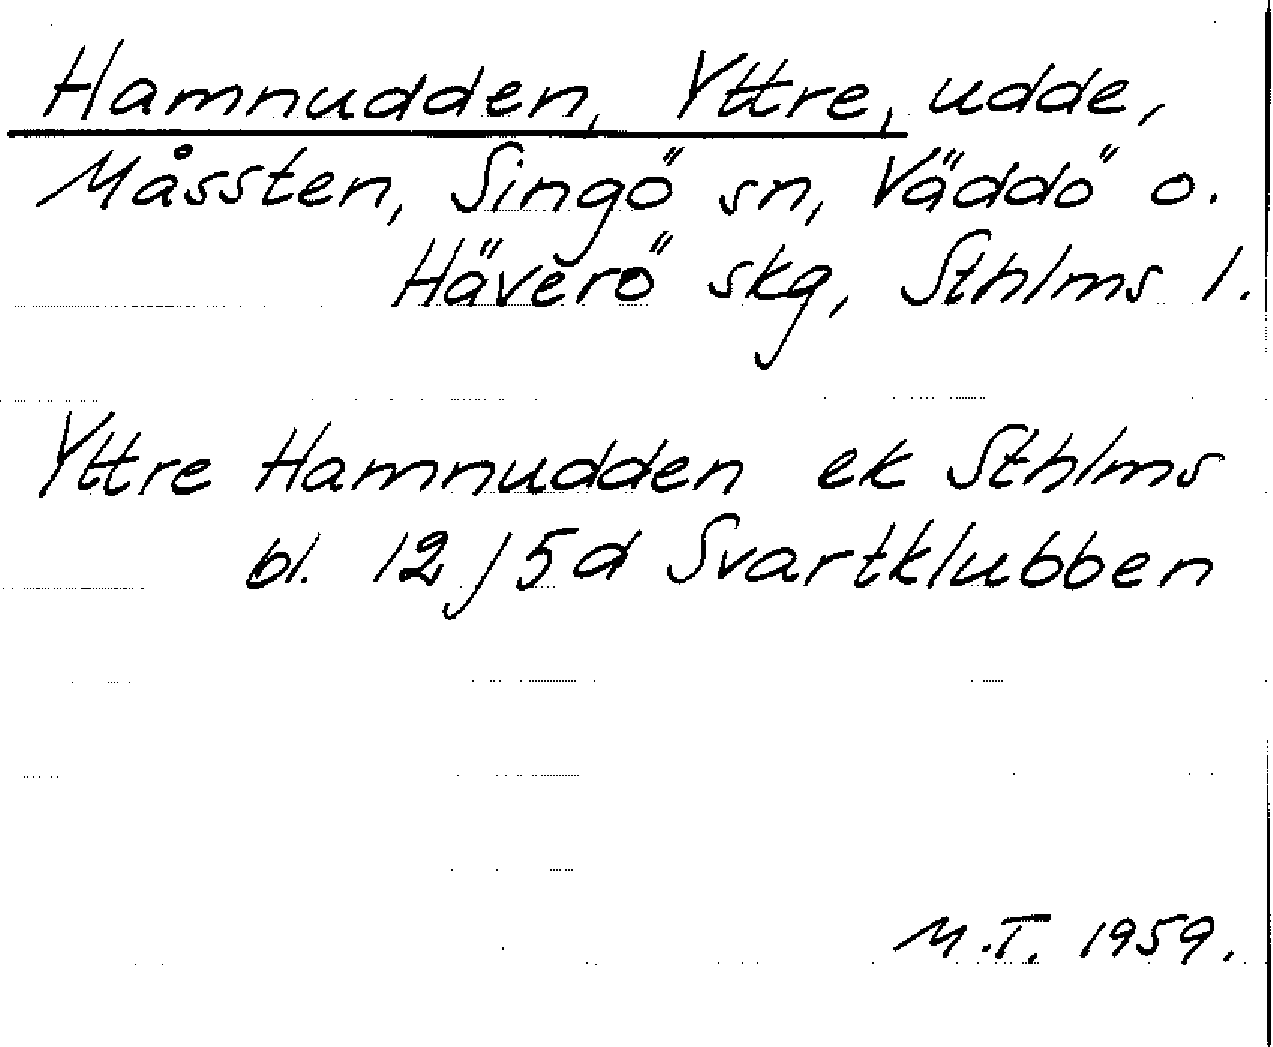 Hamnudden, Yttre, udde,
Måssten, Singö sn, Väddö o.
Häverö skg, Sthlms l.
Yttre Hamnudden ek Sthlms
bl. 12 j 5d Svartklubben
M.T. 1959.